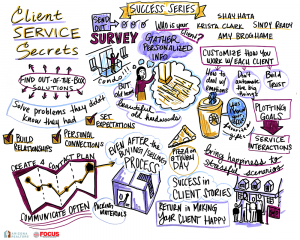 Client
SERVICE
Secrets
SUCCESS SERIES
SEND OUT
SURVEY
Who is your
SHAY HATA
KRISTA CLARK
SINDY READY
AMY BROGHAME
GATHER
PERSONALIZED
INFO
CUSTOMIZE HOW YOU
WORK W/EACH CLIENT
FIND OUT-OF-THE-BOX
SOLUTIONS
Condo
But old wood
beautiful old hardwoods
Build
TRUST
Solve problems they didn't
know they had
SET
EXPECTATIONS
BUILD
RELATIONSHIPS
PERSONAL
CONNECTIONS
PLOTTING
GOALS
SERVICE
INTERACTIONS
CREATE A CLIENT PLAN
COMMUNICATE OPTEN
EVEN AFTER THE
BUYING/SELLING
PROCESS
PACKING
MATERIALS
PIZZA ON
MOVING
DAY
bring happiness to
stressful scenarios
SUCCESS in
CLIENT STORIES
RETURN in MAKING
YOUR CLIENT HAPPY
FOCUS